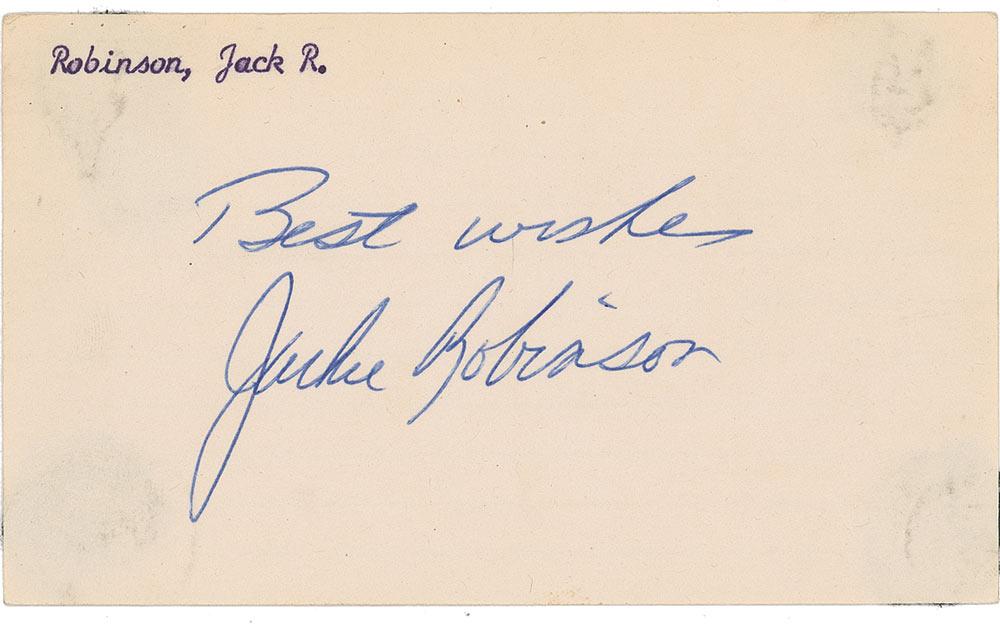 Robinson, Jack R.
Best wishes
Jackie Robinson